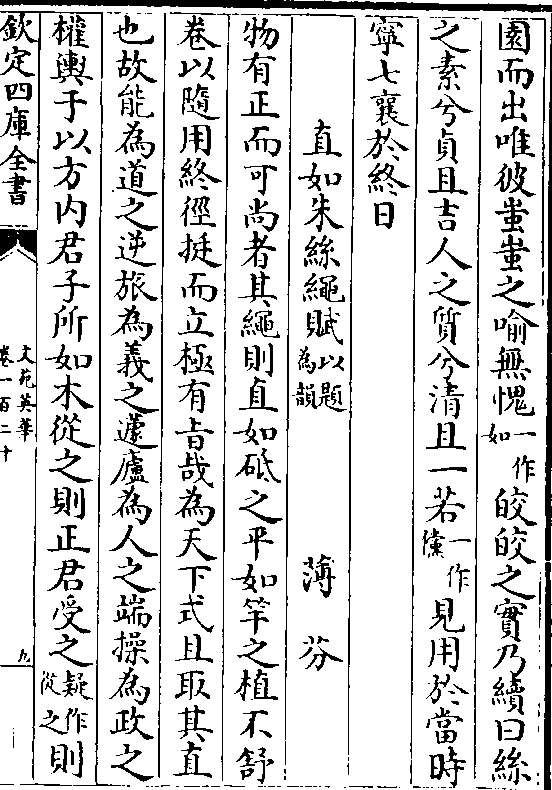 園而出唯彼蚩蚩之喻無愧一作如皎皎之實乃續曰絲
之素兮貞且吉人之質兮清且一若一作儻見用於當時
寧七襄於終日
直如朱絲繩賦以題為韻 薄芬
物有正而可尚者其繩則直如砥之平如竿之植不舒
卷以隨用終徑挺而立極有旨哉為天下式且取其直
也故能為道之逆旅為義之蘧廬為人之端操為政之
權輿予以方内君子所如木從之則正君受之疑作從之則
欽定四庫全書
文苑英華
卷一百二十
九